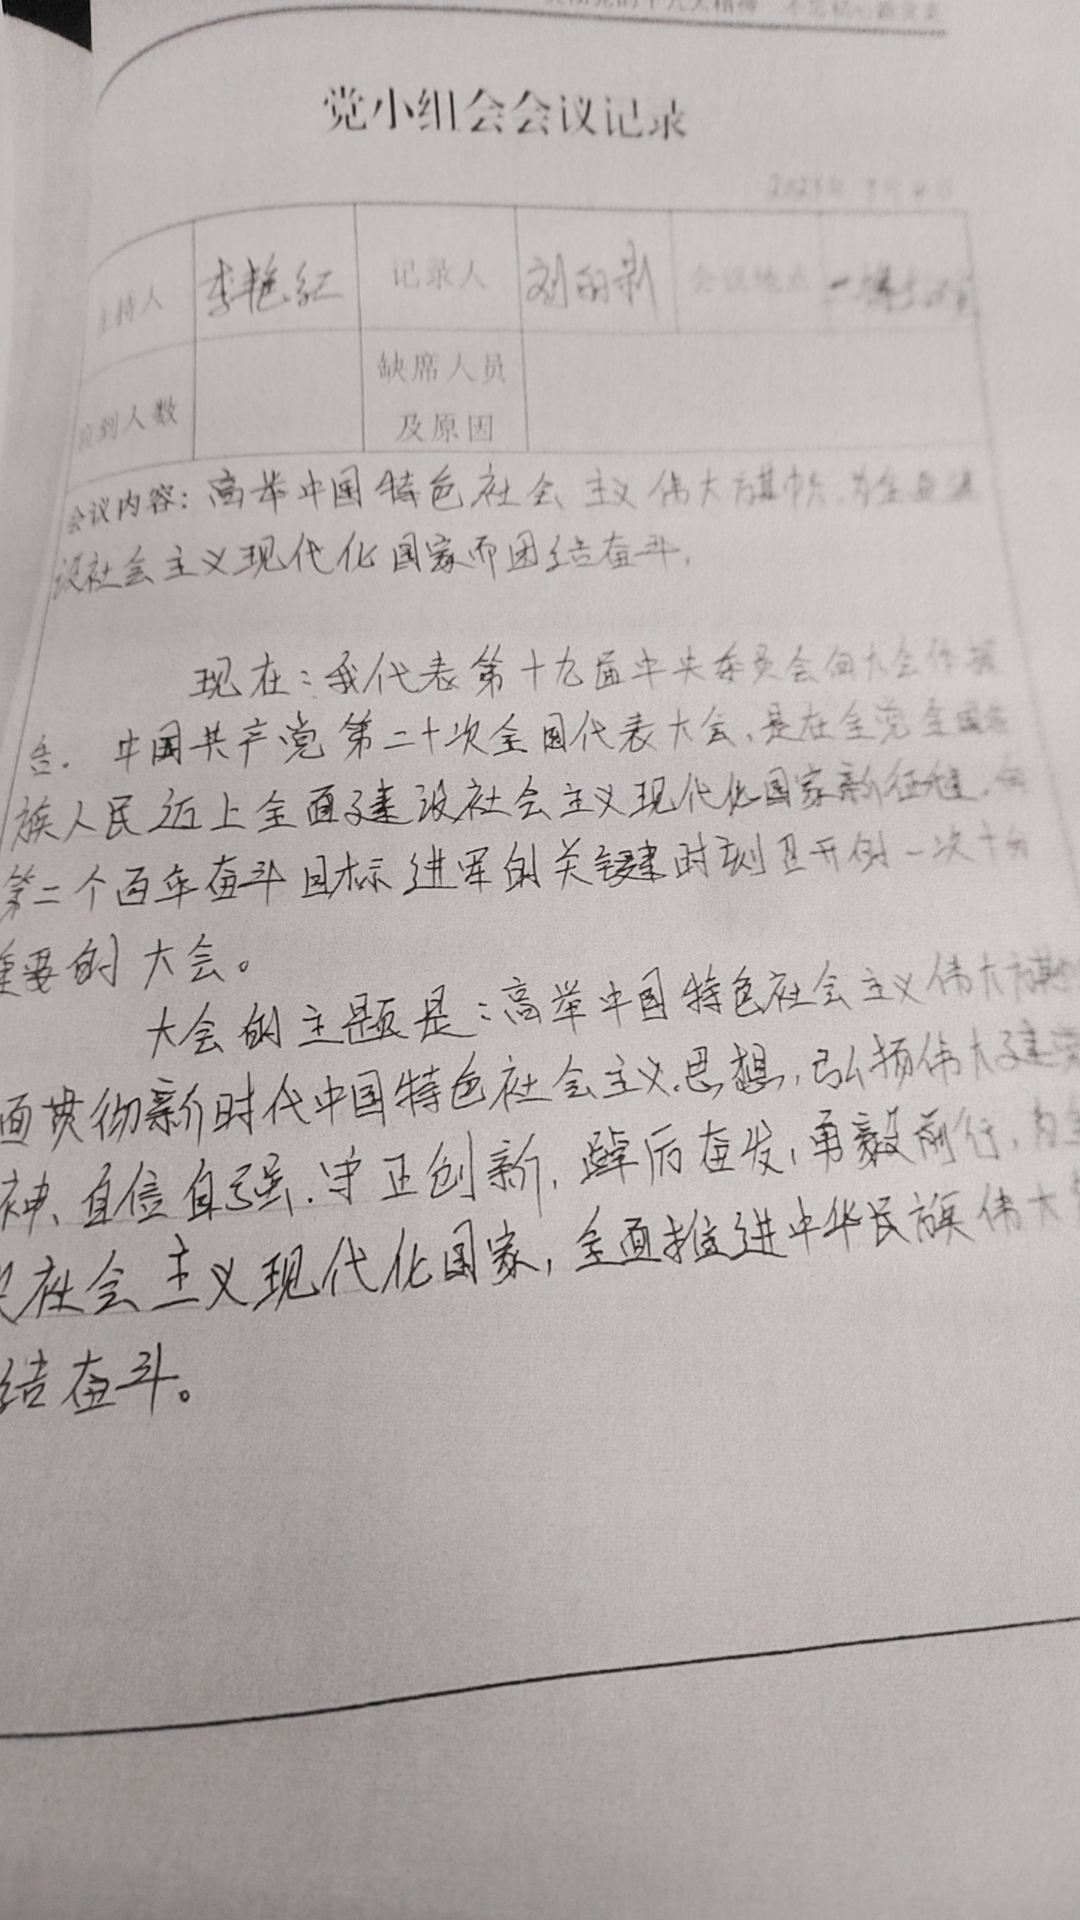 党小组会会议记录
主持人 李艳红 记录人 会议地点
应到人数 缺席人员
及原因
会议内容：高举中国特色社会主义伟大旗帜，为全面建
设社会主义现代化国家而团结奋斗，
现在：我代表第十九届中央委员会向大会作报
告．中国共产党第二十次全国代表大会，是在全党全国各
族人民迈上全面建设社会主义现代化国家新征程，向
第二个百年奋斗目标进军的关键时刻召开的一次十分
重要的大会。
大会的主题是：高举中国特色社会主义伟大旗帜
面贯彻新时代中国特色社会主义思想，弘扬伟大建党
神、自信自强．守正创新，踔厉奋发，勇毅前行，为全
社会主义现代化国家，全面推进中华民族伟大
结奋斗。